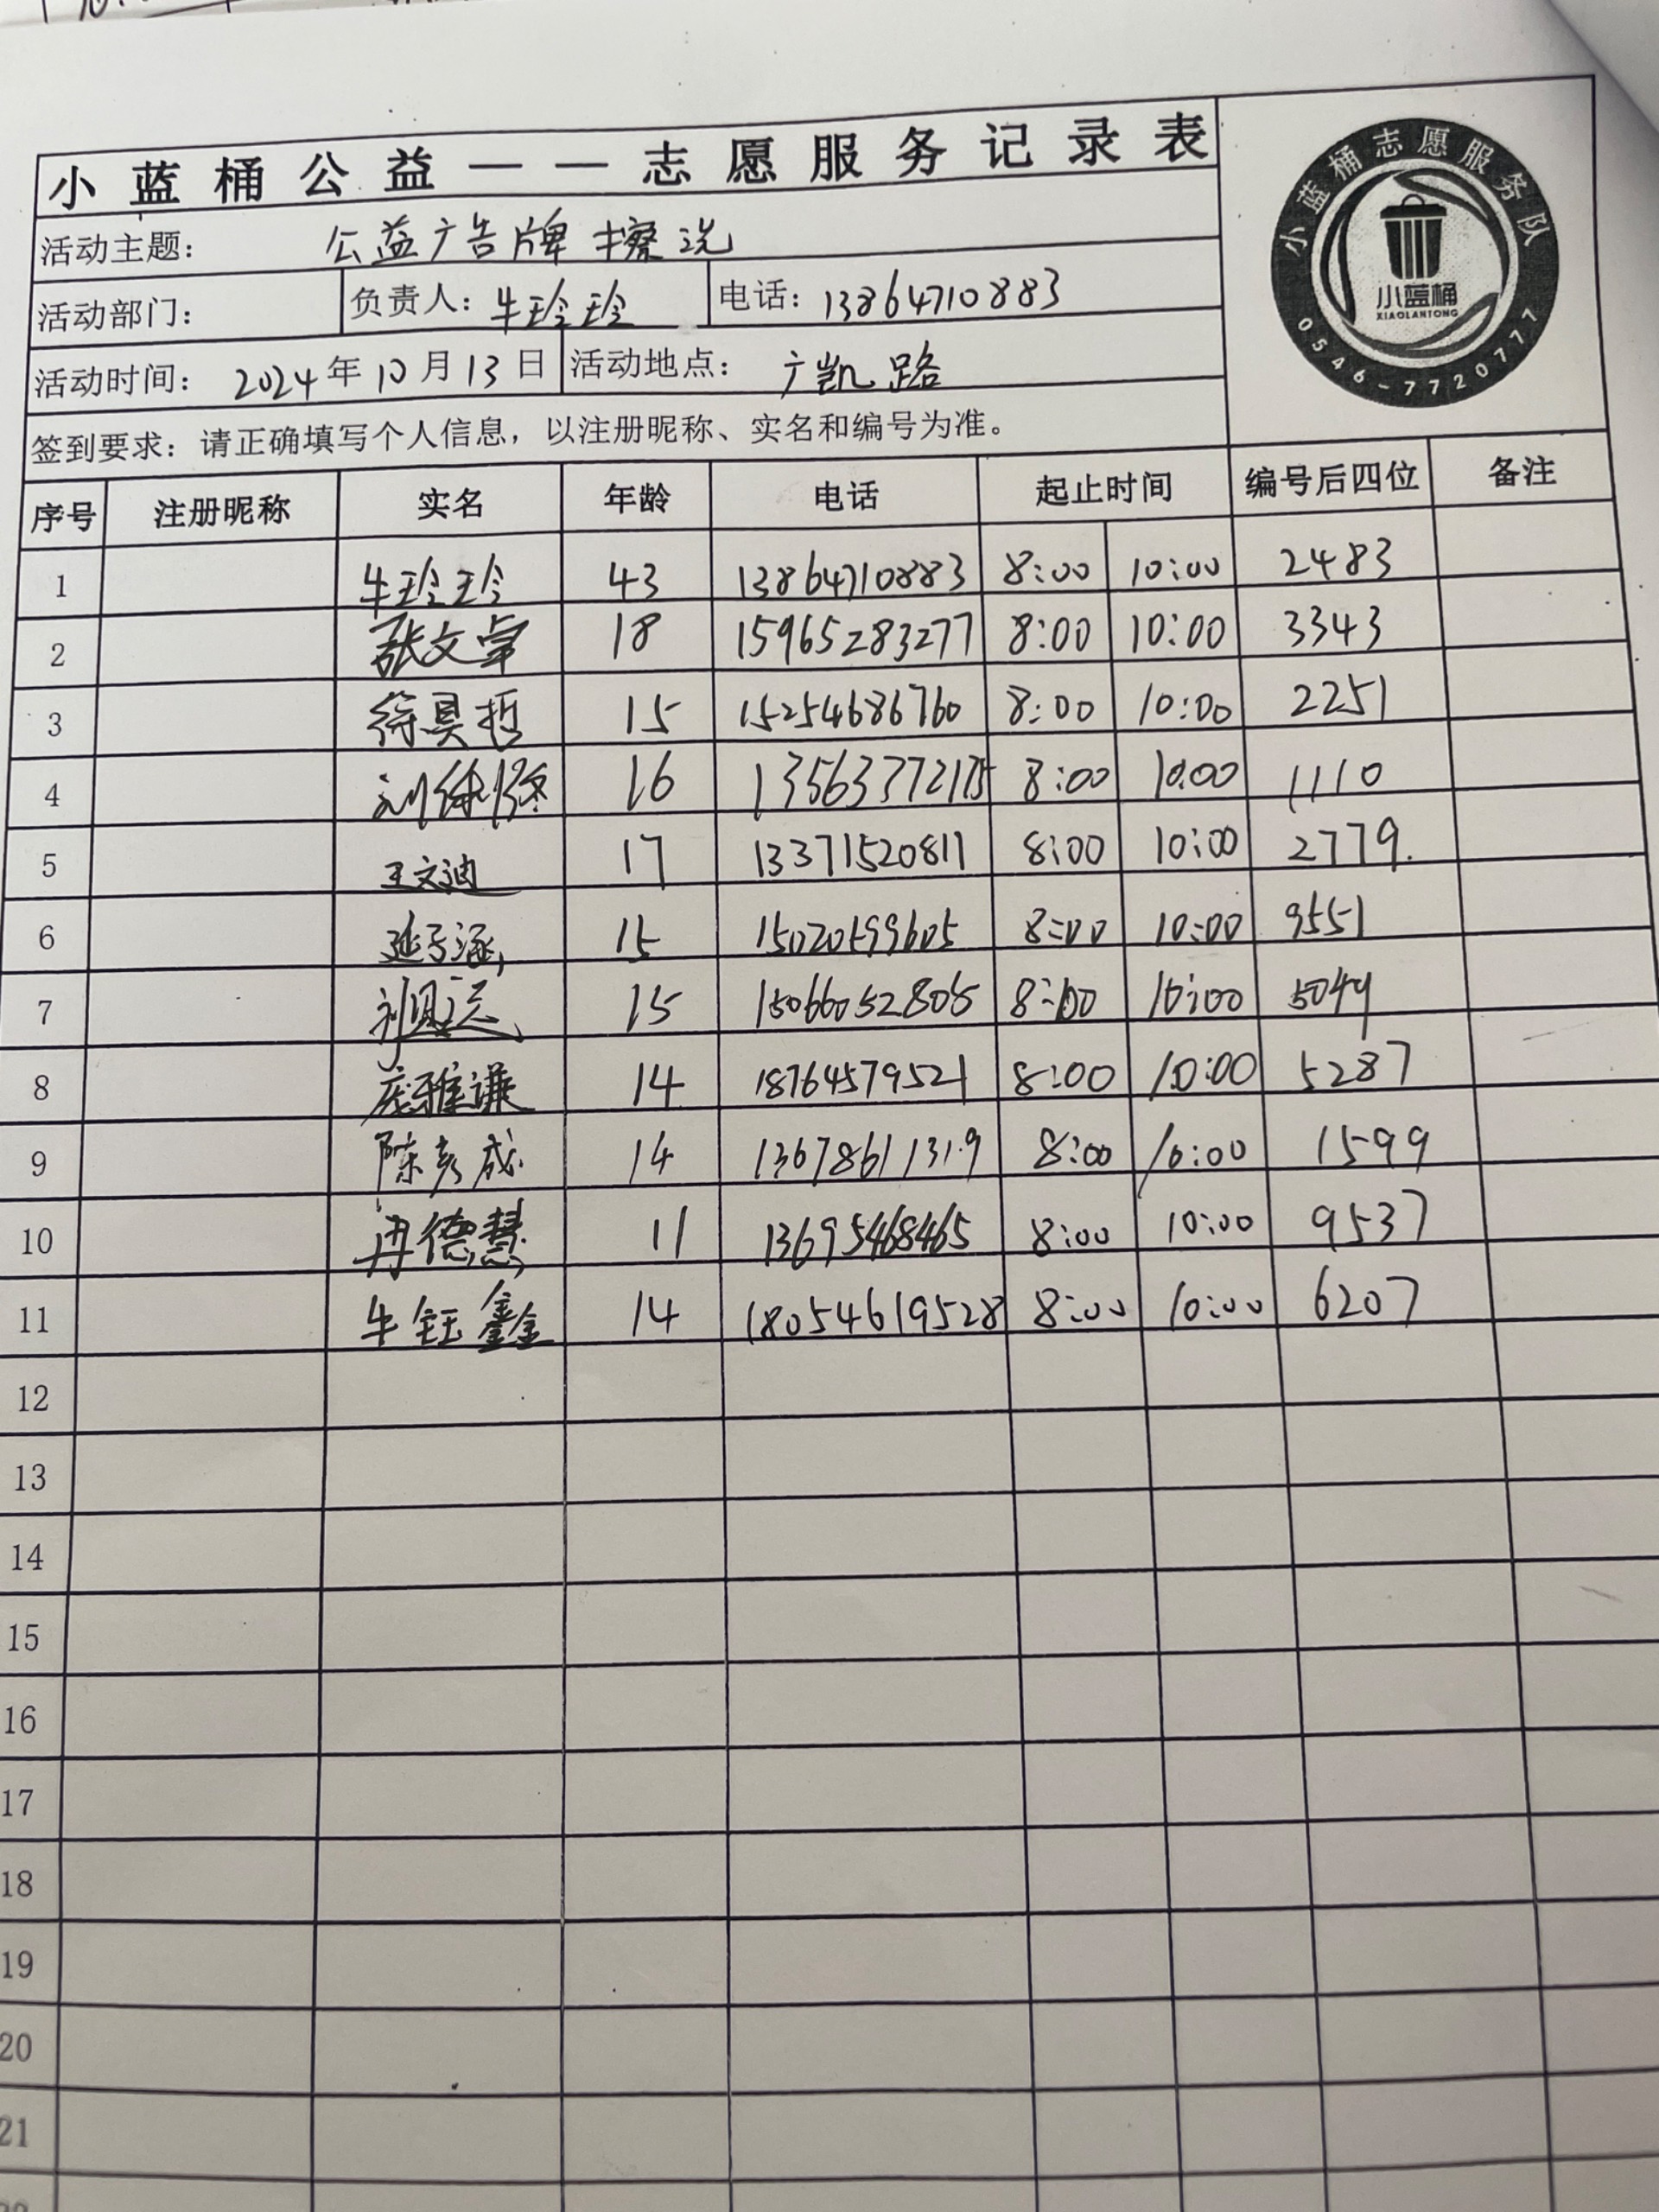 小蓝桶公益——志愿服务记录表
小蓝桶志愿服务队
小蓝桶
XIAOLANTONG
0546-7720777
活动主题： 公益广告牌擦洗
活动部门： 负责人：牛玲玲 电话：13864710883
活动时间：2024年10月13日 活动地点：广凯路
签到要求：请正确填写个人信息，以注册昵称、实名和编号为准。
序号 注册昵称 实名 年龄 电话 起止时间 编号后四位 备注
1 牛玲玲 43 13864710883 8:00 10:00 2483
2 张文卓 18 15965283277 8:00 10:00 3343
3 徐昊哲 15 15254686760 8:00 10:00 2251
4 16 8:00 10:00 1110
5 王文迪 17 13371520811 8:00 10:00 2779.
6 延子涵 15 15020599605 8:00 10:00 9551
7 15 15066052805 8:00 10:00 5049
8 庞雅谦 14 18764579521 8:00 10:00 5287
9 陈彦成 14 13678611319 8:00 10:00 1599
10 冉德慧 11 13695468465 8:00 10:00 9537
11 牛钰鑫 14 18054619528 8:00 10:00 6207
12
13
14
15
16
17
18
19
20
21